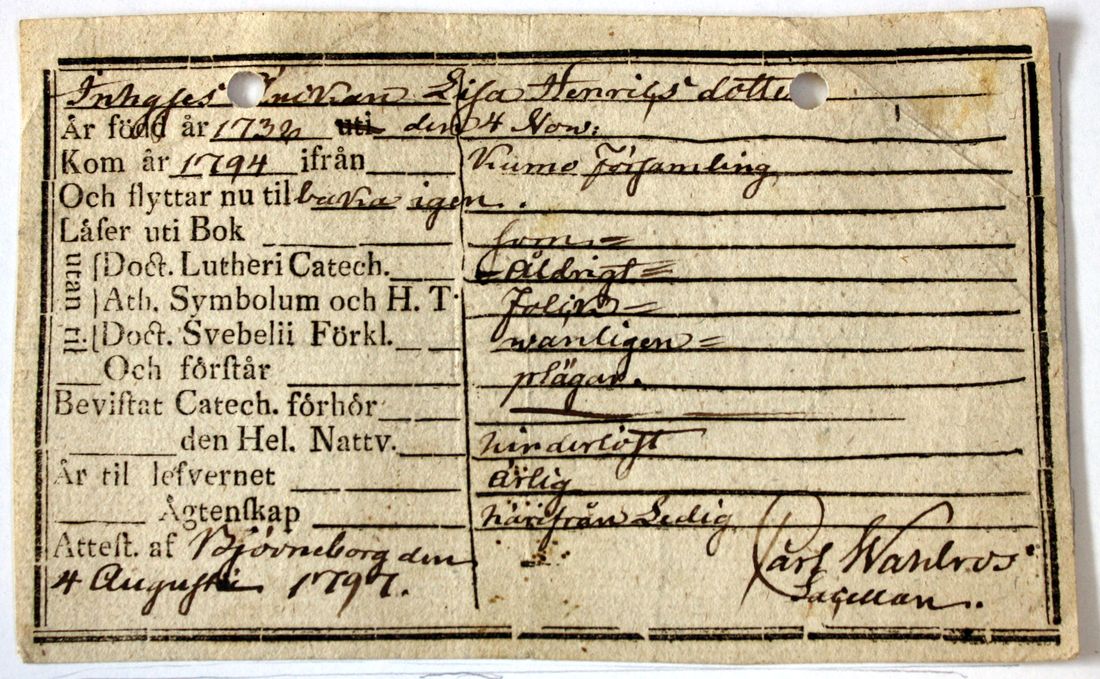 Inhyses Enckan Lisa Henrichs dotter
Är född år 1732 uti den 4 Nov:
Kom år 1794 ifrån Kumo Församling
Och flyttar nu til baka igen.
Låſer uti Bok ſom
Doct. Lutheri Catech. Åldrigt
Ath. Symbolum och H. T.
utan til Doct. Svebelii Förkl. wanligen
Och förſtår plägar.
Beviſtat Catech. förhör
den Hel. Nattv. hinderlöſt
Är til lefvernet ärlig
Ägtenſkap härifrån Ledig
Atteſt. af Björneborg den
4 Augusti 1797.
Carl Wahlros